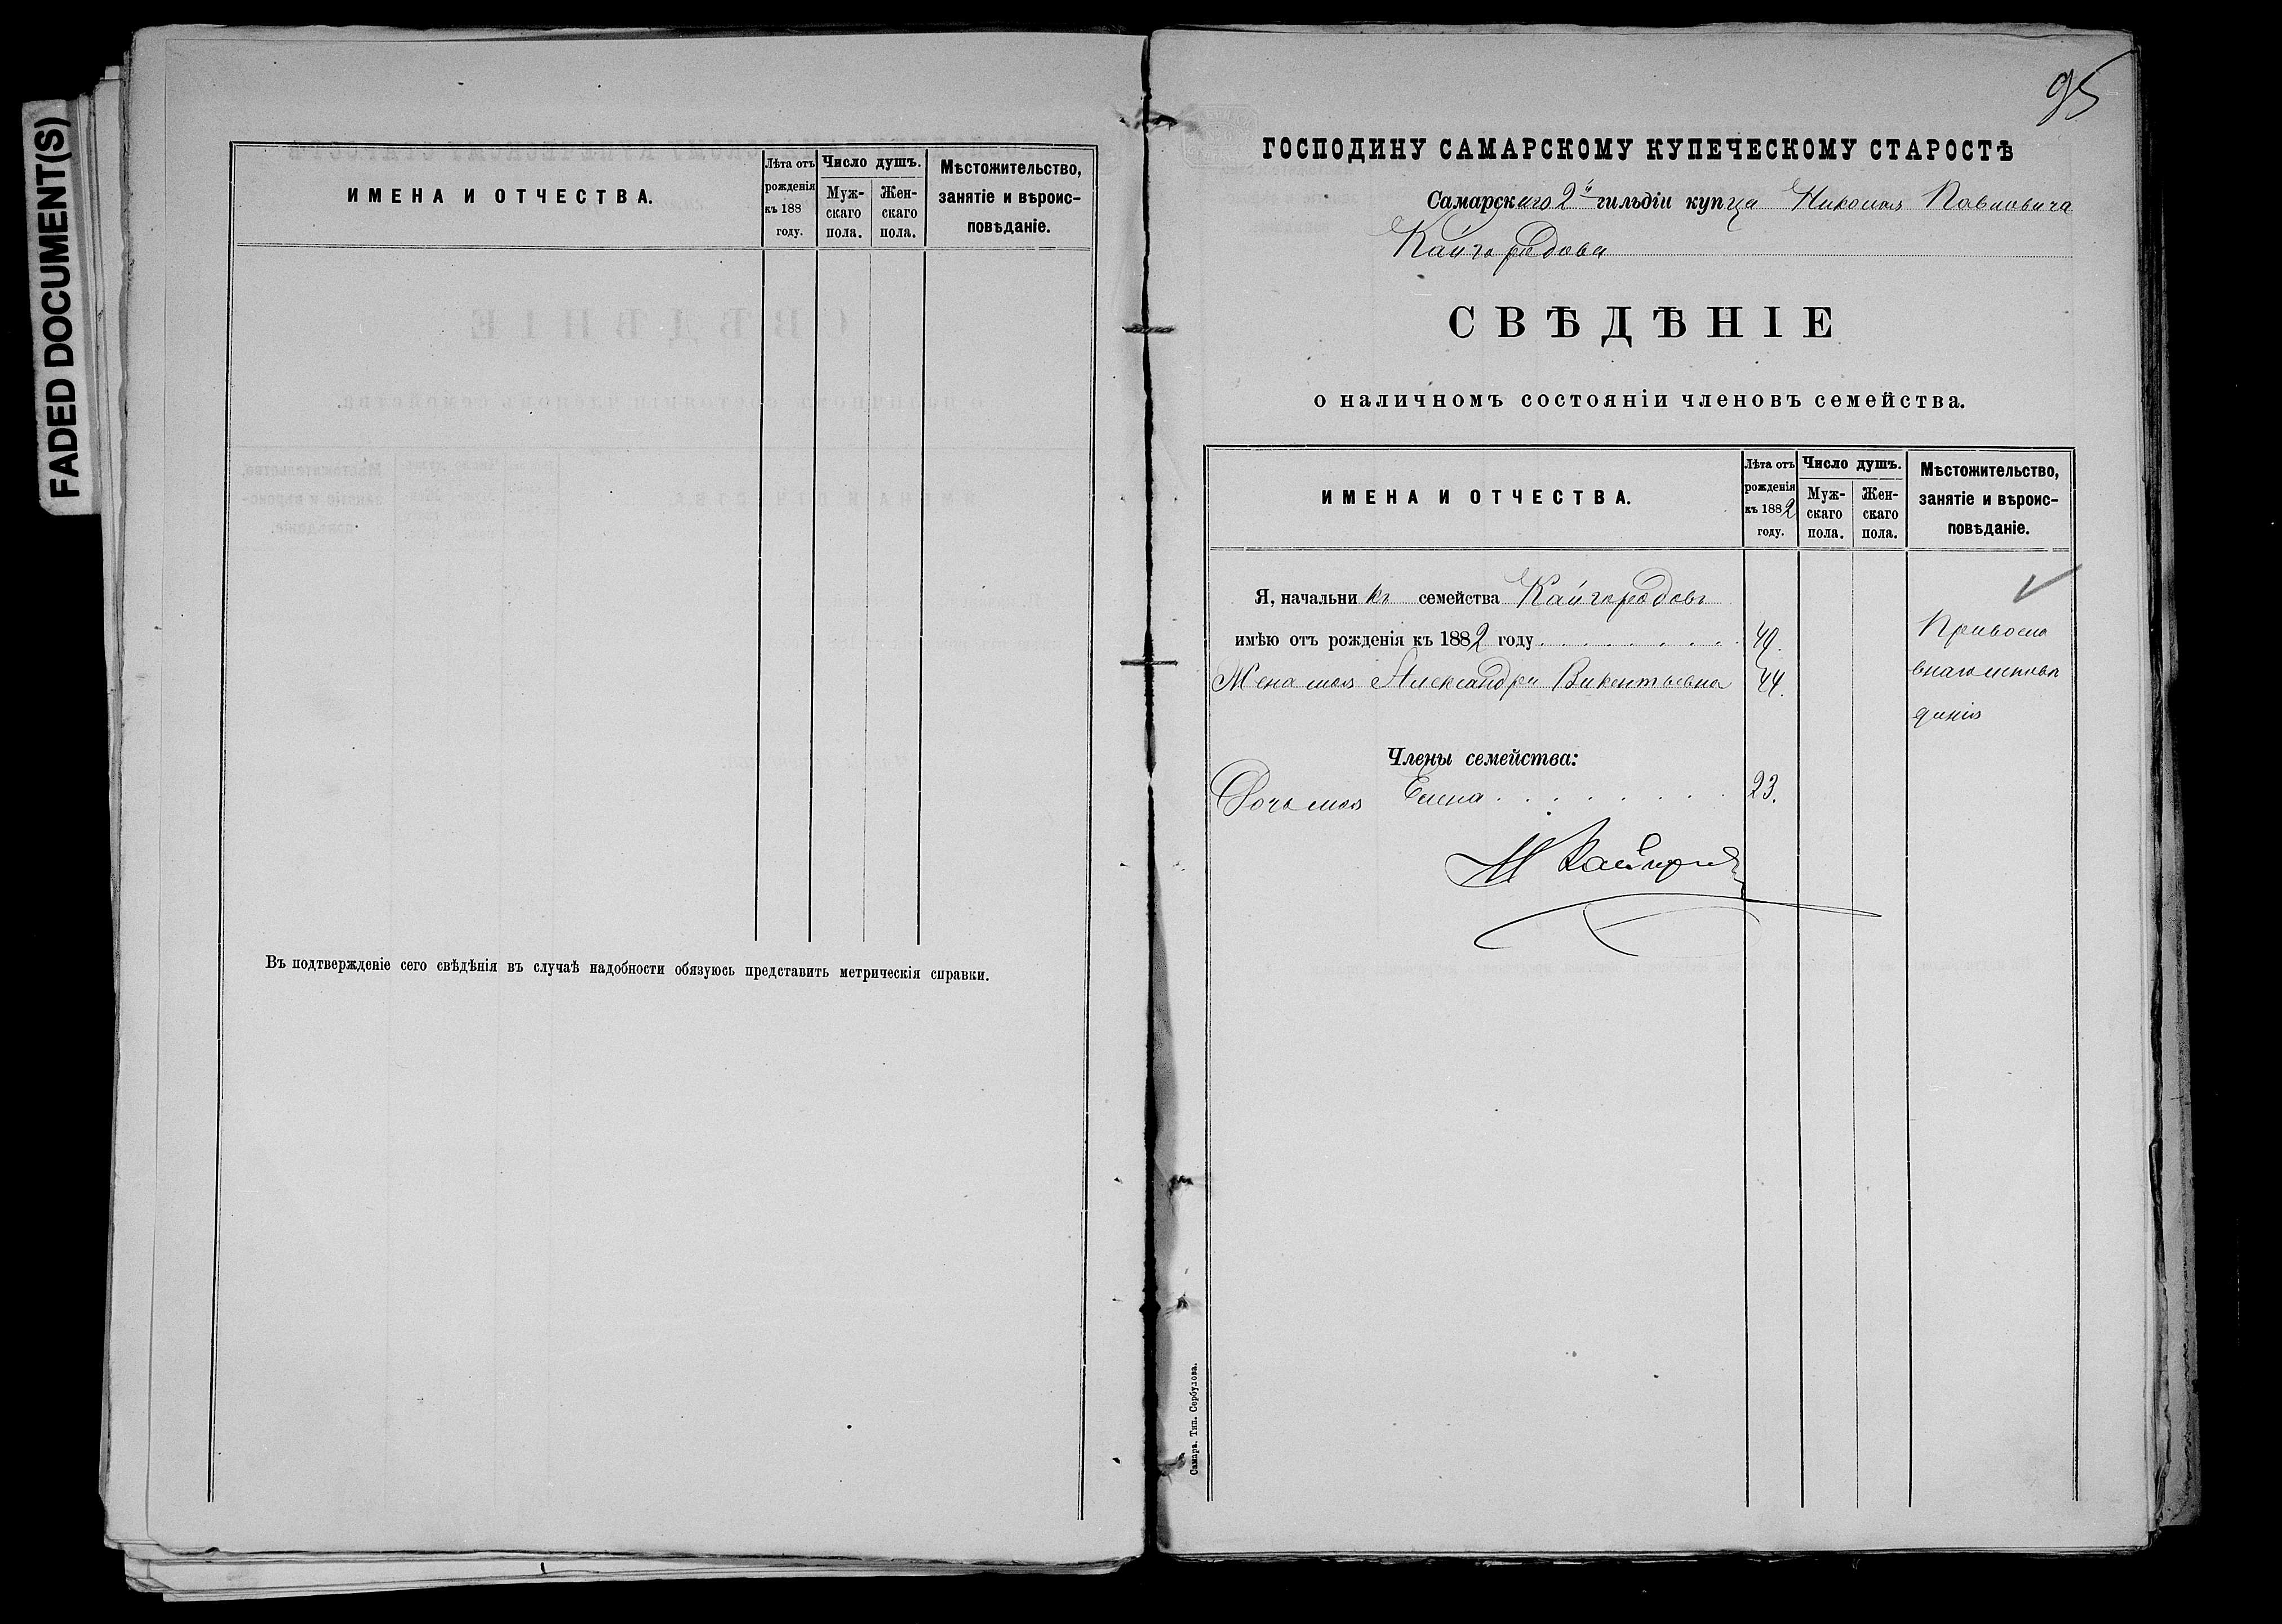 FADED DOCUMENT(S)
ИМЕНА И ОТЧЕСТВА.
Лѣта отъ рожденія къ 188 году.
Число душъ.
Мужскаго пола.
Женскаго пола.
Мѣстожительство, занятіе и вѣроисповѣданіе.
Въ подтвержденіе сего свѣдѣнія въ случаѣ надобности обязуюсь представить метрическія справки.
95
ГОСПОДИНУ САМАРСКОМУ КУПЕЧЕСКОМУ СТАРОСТѢ
Самарскаго 2й гильдіи купца Николая Павловича
Кайгородова
СВѢДѢНІЕ
о наличномъ состояніи членовъ семейства.
ИМЕНА И ОТЧЕСТВА.
Лѣта отъ рожденія къ 1882 году.
Число душъ.
Мужскаго пола.
Женскаго пола.
Мѣстожительство, занятіе и вѣроисповѣданіе.
Я, начальникъ семейства Кайгородовъ
имѣю отъ рожденія къ 1882 году 49.
Православнаго исповѣданія
Жена моя Александра Викентьевна 44.
Члены семейства:
Дочь моя Елена 23.
Н Кайгородовъ
Самара. Тип. Сербулова.